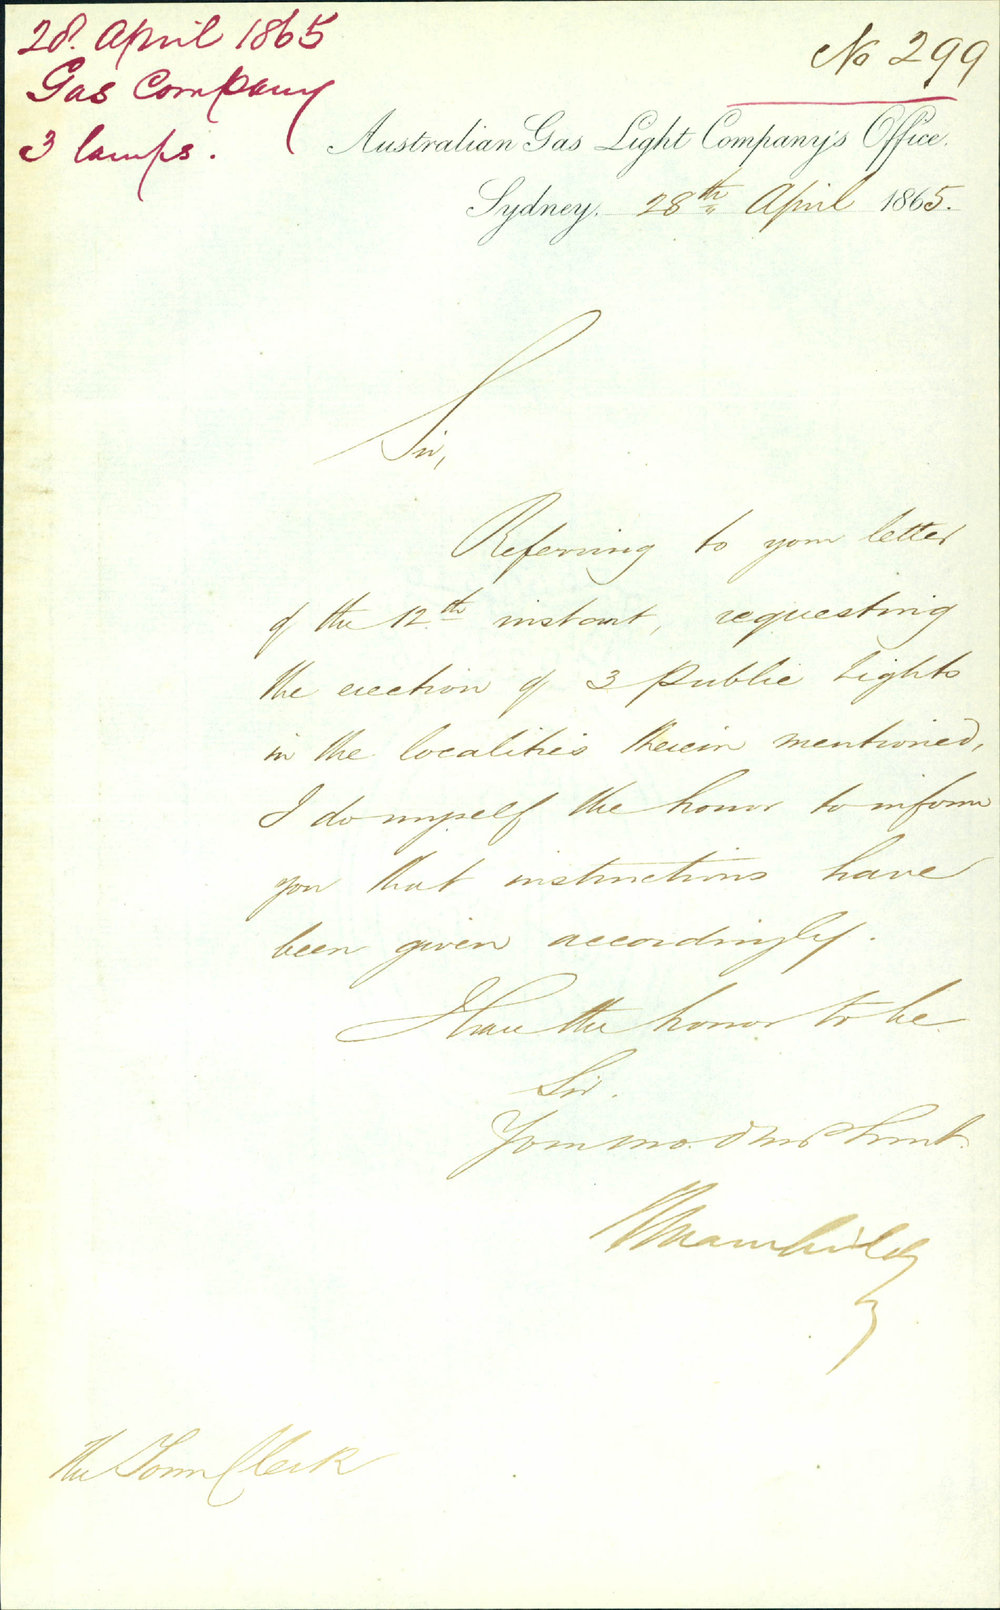 28. April 1865
Gas Company
3 lamps.
No 299
Australian Gas Light Company's Office.
Sydney. 28th April 1865.
Sir,
Referring to your letter
of the 12th instant, requesting
the erection of 3 Public Lights
in the localities therein mentioned,
I do myself the honor to inform
you that instructions have
been given accordingly.
I have the honor to be
Sir.
Your mo. Obt Servt.
The Town Clerk